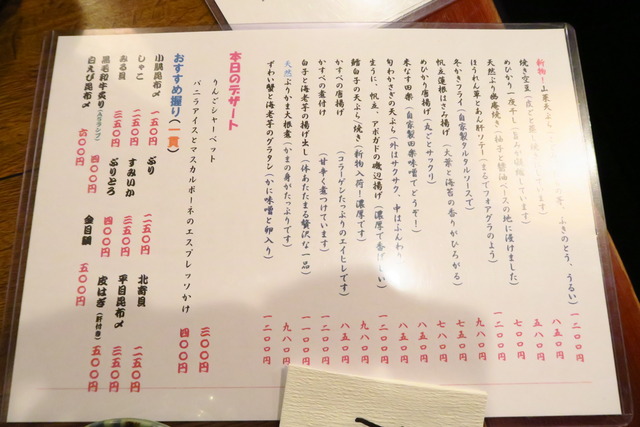 新物!山菜天ぷら の芽、ふきのとう、うるい) 一二〇〇円
焼き空豆(皮ごと 焼いています) 五八〇円
めひかり一夜干し( 凝縮しています) 八五〇円
天然ぶり幽庵焼き(柚子と醤油ベースの地に漬けました) 七〇〇円
ほうれん草とあん肝ソテー(まるでフォアグラのよう) 一二〇〇円
冬かきフライ(自家製タルタルソースで) 九八〇円
帆立蓮根はさみ揚げ(大葉と海苔の香りがひろがる) 七五〇円
めひかり唐揚げ(丸ごとサックリ) 七八〇円
米なす田楽(自家製田楽味噌でどうぞ!) 八五〇円
旬わかさぎの天ぷら(外はサクサク、中はふんわり) 八五〇円
生うに、帆立、アボガドの磯辺揚げ(濃厚で香ばしい) 一二〇〇円
鱈白子の天ぷら/焼き(新物入荷!濃厚です) 九八〇円
かすべの唐揚げ(コラーゲンたっぷりのエイヒレです) 八五〇円
かすべの煮付け(甘辛く煮つけています) 八五〇円
白子と海老芋の揚げ出し(体あたたまる贅沢な一品) 九八〇円
天然ぶりかま大根煮(かまの身がたっぷりです) 九八〇円
ずわい蟹と海老芋のグラタン(かに味噌と卵入り) 一二〇〇円
本日のデザート
りんごシャーベット 三〇〇円
バニラアイスとマスカルポーネのエスプレッソかけ 四〇〇円
おすすめ握り(一貫)
小肌昆布〆 一五〇円 ぶり 二五〇円 北寄貝 二五〇円
しゃこ 二五〇円 すみいか 三五〇円 平目昆布〆 三五〇円
みる貝 四〇〇円 ぶりとろ 四〇〇円 皮はぎ(肝付き) 五〇〇円
黒毛和牛炙り 四〇〇円 金目鯛 五〇〇円
白えび昆布〆 六〇〇円